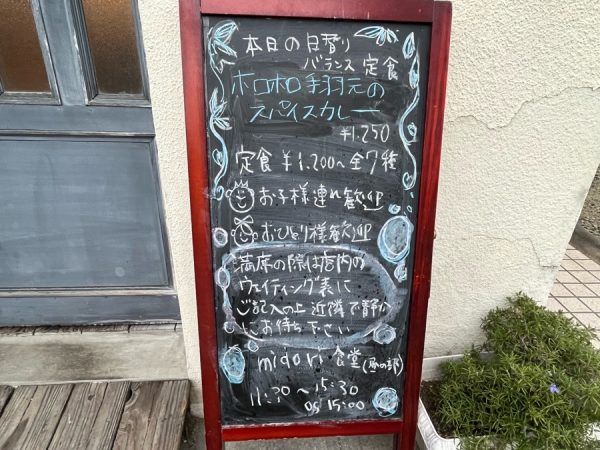 本日の日替り
バランス 定食
ホロホロ手羽元の
スパイスカレー
¥1.250
定食 ¥1.200〜全7種
お子様連れ歓迎
おひとり様歓迎
満席の際は店内の
ウェイティング表に
ご記入の上近隣で静か
にお待ち下さい
midori 食堂(昼の部)
11:30〜15:30
os 15:00